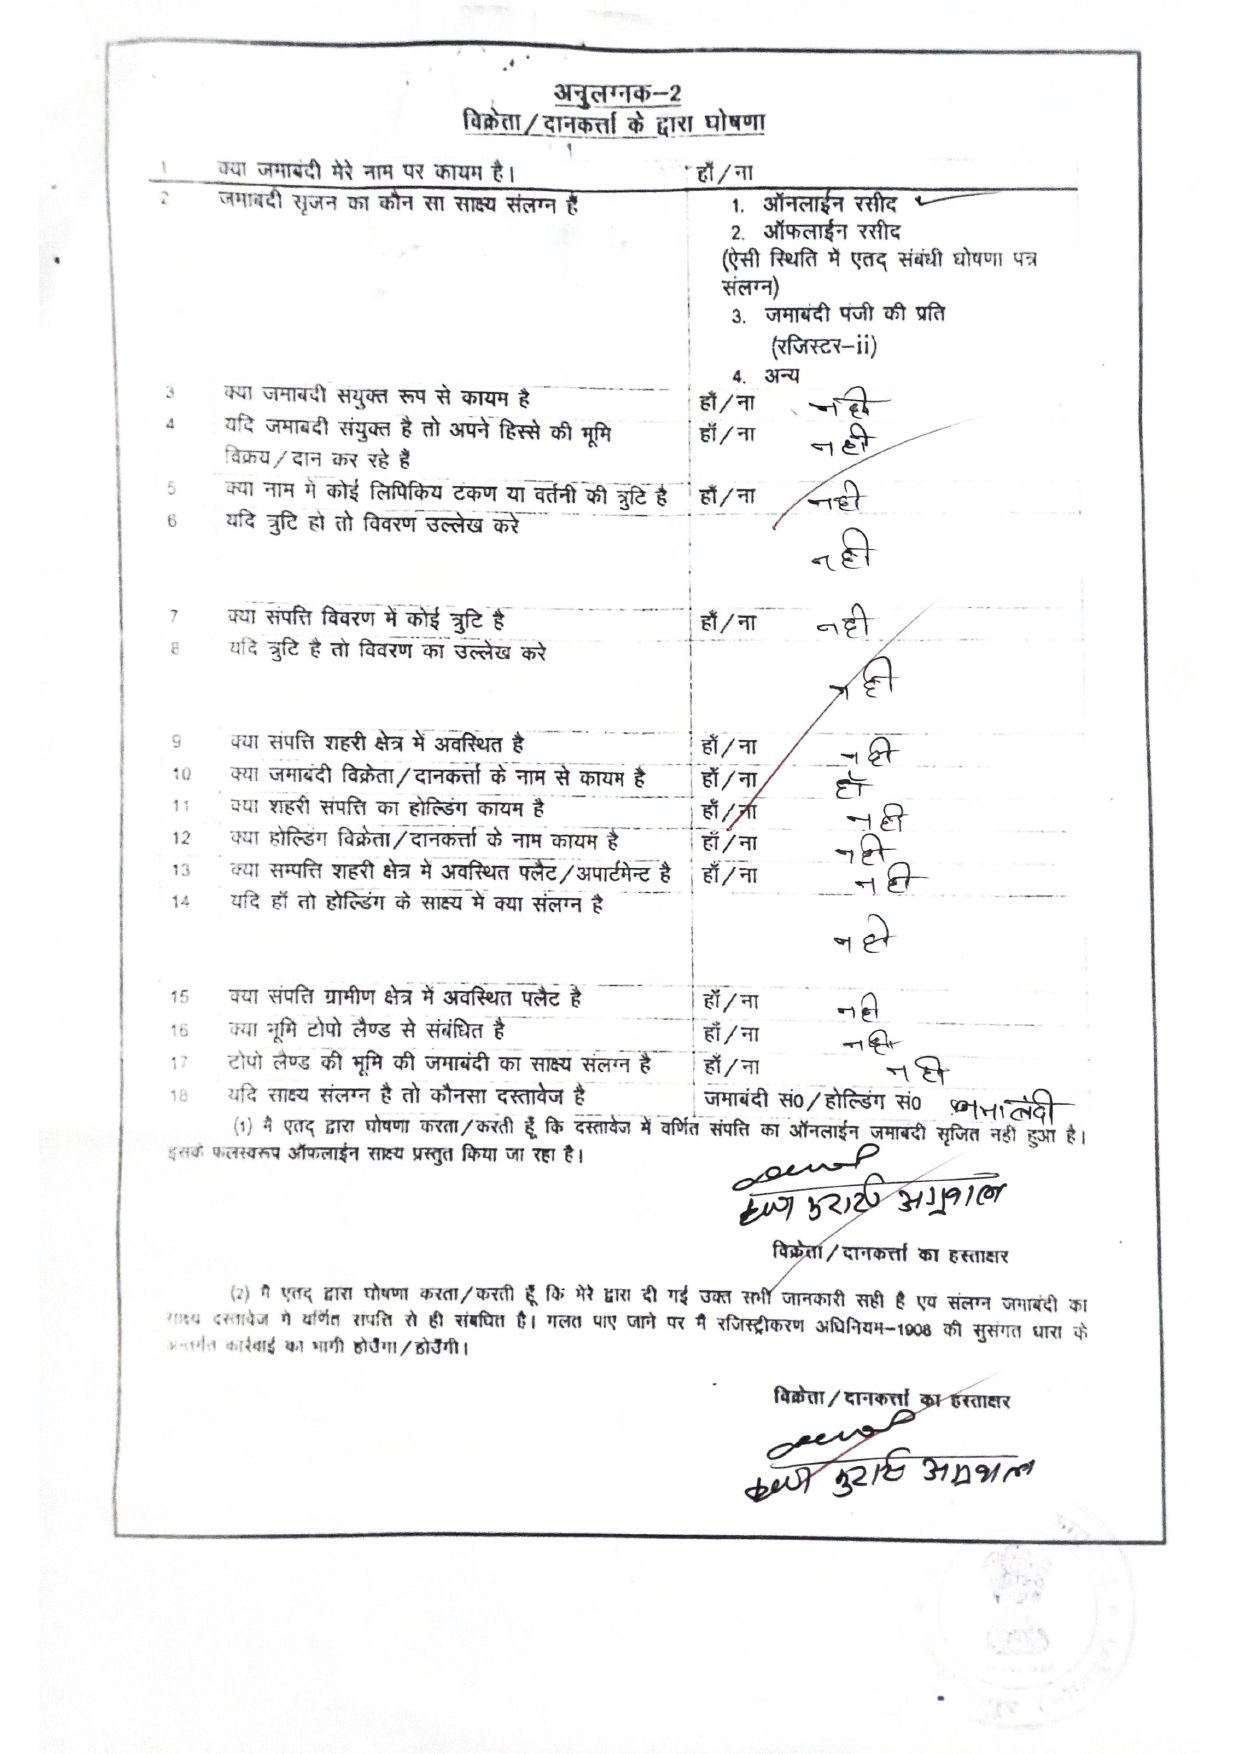 अनुलग्नक-2
विक्रेता/दानकर्त्ता के द्वारा घोषणा
1 क्या जमाबंदी मेरे नाम पर कायम है। हाँ/ना
2 जमाबंदी सृजन का कौन सा साक्ष्य संलग्न है 1. ऑनलाईन रसीद ✓
2. ऑफलाईन रसीद
(ऐसी स्थिति में एतद संबंधी घोषणा पत्र
संलग्न)
3. जमाबंदी पंजी की प्रति
(रजिस्टर-ii)
4. अन्य
3 क्या जमाबंदी संयुक्त रूप से कायम है हाँ/ना नही
4 यदि जमाबंदी संयुक्त है तो अपने हिस्से की भूमि हाँ/ना नही
विक्रय/दान कर रहे हैं
5 क्या नाम मे कोई लिपिकिय टंकण या वर्तनी की त्रुटि है हाँ/ना नही
6 यदि त्रुटि हो तो विवरण उल्लेख करे
नही
7 क्या संपत्ति विवरण में कोई त्रुटि है हाँ/ना नही
8 यदि त्रुटि है तो विवरण का उल्लेख करे
नही
9 क्या संपत्ति शहरी क्षेत्र में अवस्थित है हाँ/ना नही
10 क्या जमाबंदी विक्रेता/दानकर्त्ता के नाम से कायम है हाँ/ना हाँ
11 क्या शहरी संपत्ति का होल्डिंग कायम है हाँ/ना नही
12 क्या होल्डिंग विक्रेता/दानकर्त्ता के नाम कायम है हाँ/ना नही
13 क्या सम्पत्ति शहरी क्षेत्र में अवस्थित फ्लैट/अपार्टमेन्ट है हाँ/ना नही
14 यदि हाँ तो होल्डिंग के साक्ष्य मे क्या संलग्न है
नही
15 क्या संपति ग्रामीण क्षेत्र में अवस्थित फ्लैट है हाँ/ना नही
16 क्या भूमि टोपो लैण्ड से संबंधित है हाँ/ना नही
17 टोपो लैण्ड की भूमि की जमाबंदी का साक्ष्य संलग्न है हाँ/ना नही
18 यदि साक्ष्य संलग्न है तो कौनसा दस्तावेज है जमाबंदी सं0/होल्डिंग सं0
(1) मै एतद् द्वारा घोषणा करता/करती हूँ कि दस्तावेज में वर्णित संपति का ऑनलाईन जमाबंदी सृजित नही हुआ है।
इसके फलस्वरूप ऑफलाईन साक्ष्य प्रस्तुत किया जा रहा है।
मुरारी अग्रवाल
विक्रेता/दानकर्त्ता का हस्ताक्षर
(2) मै एतद् द्वारा घोषणा करता/करती हूँ कि मेरे द्वारा दी गई उक्त सभी जानकारी सही है एवं संलग्न जमाबंदी का
साक्ष्य दस्तावेज मे वर्णित संपति से ही संबधित है। गलत पाए जाने पर मै रजिस्ट्रीकरण अधिनियम-1908 की सुसंगत धारा के
अन्तर्गत कार्रवाई का भागी होउँगा/होउँगी।
विक्रेता/दानकर्त्ता का हस्ताक्षर
मुरारी अग्रवाल